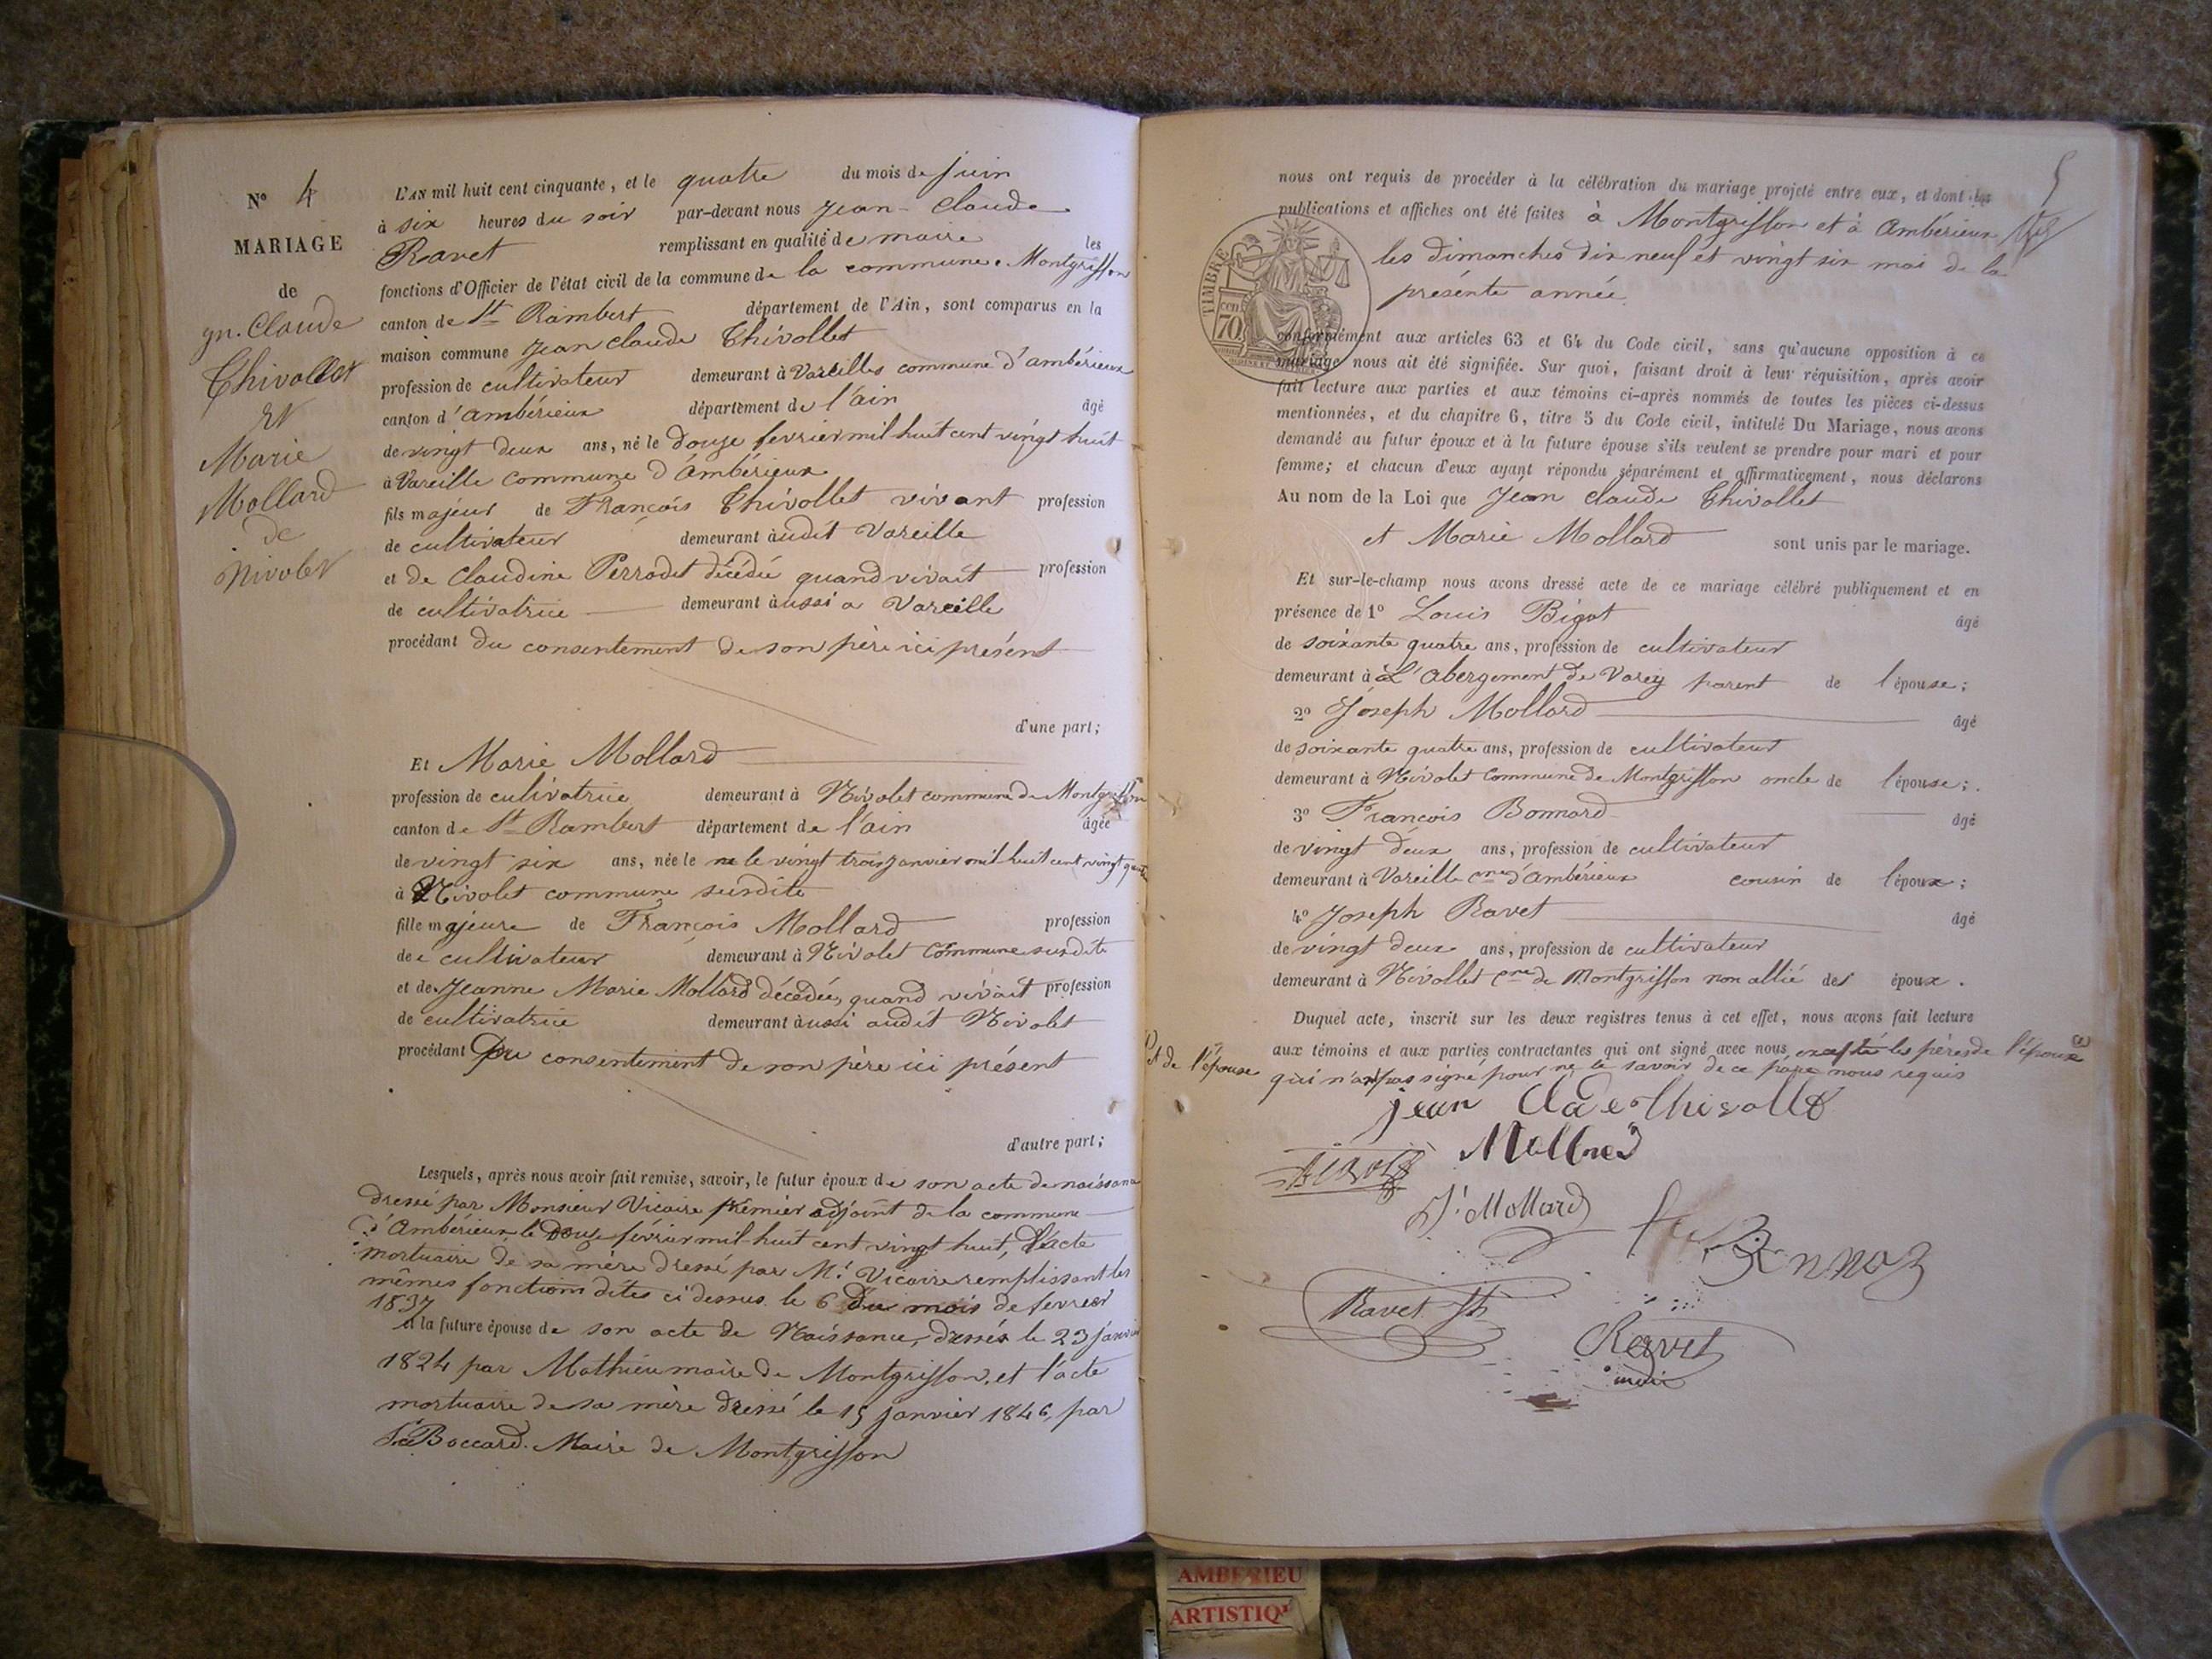 N° 4
MARIAGE
de
Jn. Claude
Thivollet
et
Marie
Mollard
de
Nivolet
L'AN mil huit cent cinquante, et le quatre du mois de juin
à six heures du soir par-devant nous Jean-Claude
Ravet remplissant en qualité de maire les
fonctions d'Officier de l'état civil de la commune de la commune Montgriffon
canton de St Rambert département de l'Ain, sont comparus en la
maison commune Jean Claude Thivollet
profession de cultivateur demeurant à Vareilles commune d'ambérieux
canton d'ambérieux département de l'ain âgé
de vingt deux ans, né le douze fevrier mil huit cent vingt huit
à Vareille commune d'Ambérieux
fils majeur de François Thivollet vivant profession
de cultivateur demeurant àudit Vareille
et de Claudine Perrodet décédée quand vivait profession
de cultivatrice demeurant àussi a Vareille
procédant du consentement de son père ici présent
d'une part;
Et Marie Mollard
profession de cultivatrice demeurant à Nivolet commune de Montgriffon
canton de St Rambert département de l'ain âgée
de vingt six ans, née le ne le vingt trois janvier mil huit cent vingt quatre
à Nivolet commune susdite
fille majeure de François Mollard profession
de cultivateur demeurant à Nivolet Commune susdite
et de Jeanne Marie Mollard décédée, quand vivait profession
de cultivatrice demeurant àussi audit Nivolet
procédant Du consentement de son père ici présent
d'autre part;
Lesquels, après nous avoir fait remise, savoir, le futur époux de son acte de naissance
dressé par Monsieur Vicaire premier adjoint de la commune
d'Ambérieux le Douze février mil huit cent vingt huit, l'acte
mortuaire de sa mère dressé par Mr Vicaire remplissant les
mêmes fonctions dites ci dessus le 6 du mois de fevrier
1837
et la future épouse de son acte de Naissance, dressés le 23 janvier
1824 par Mathieu maire de Montgriffon, et l'acte
mortuaire de sa mère dressé le 15 janvier 1846, par
Boccard. Maire de Montgriffon
5
nous ont requis de procéder à la célébration du mariage projeté entre eux, et dont les
publications et affiches ont été faites à Montgriffon et à Ambérieux
les dimanches dix neuf et vingt six mai de la
présente année
TIMBRE
cen
70
conformément aux articles 63 et 64 du Code civil, sans qu'aucune opposition à ce
mariage nous ait été signifiée. Sur quoi, faisant droit à leur réquisition, après avoir
fait lecture aux parties et aux témoins ci-après nommés de toutes les pièces ci-dessus
mentionnées, et du chapitre 6, titre 5 du Code civil, intitulé Du Mariage, nous avons
demandé au futur époux et à la future épouse s'ils veulent se prendre pour mari et pour
femme; et chacun d'eux ayant répondu séparément et affirmativement, nous déclarons
Au nom de la Loi que Jean claude Thivollet
et Marie Mollard sont unis par le mariage.
Et sur-le-champ nous avons dressé acte de ce mariage célébré publiquement et en
présence de 1° Louis Bigot âgé
de soixante quatre ans, profession de cultivateur
demeurant à L'Abergement de Varey parent de l'épouse;
2° Joseph Mollard âgé
de soixante quatre ans, profession de cultivateur
demeurant à Nivolet Commune de Montgriffon oncle de l'épouse;
3° François Bonnard âgé
de vingt deux ans, profession de cultivateur
demeurant à Vareille cne d'Ambérieux cousin de l'époux;
4° Joseph Ravet âgé
de vingt deux ans, profession de cultivateur
demeurant à Nivollet Cne de Montgriffon non allié des époux.
Duquel acte, inscrit sur les deux registres tenus à cet effet, nous avons fait lecture
aux témoins et aux parties contractantes qui ont signé avec nous excepté les pères de l'époux
et de l'épouse
qui n'ont pas signé pour ne le savoir de ce faire nous requis
jean Clade thivollet
Mollard
J. Mollard
Ravet Jh
Ravet
maire
AMBERIEU
ARTISTIQU